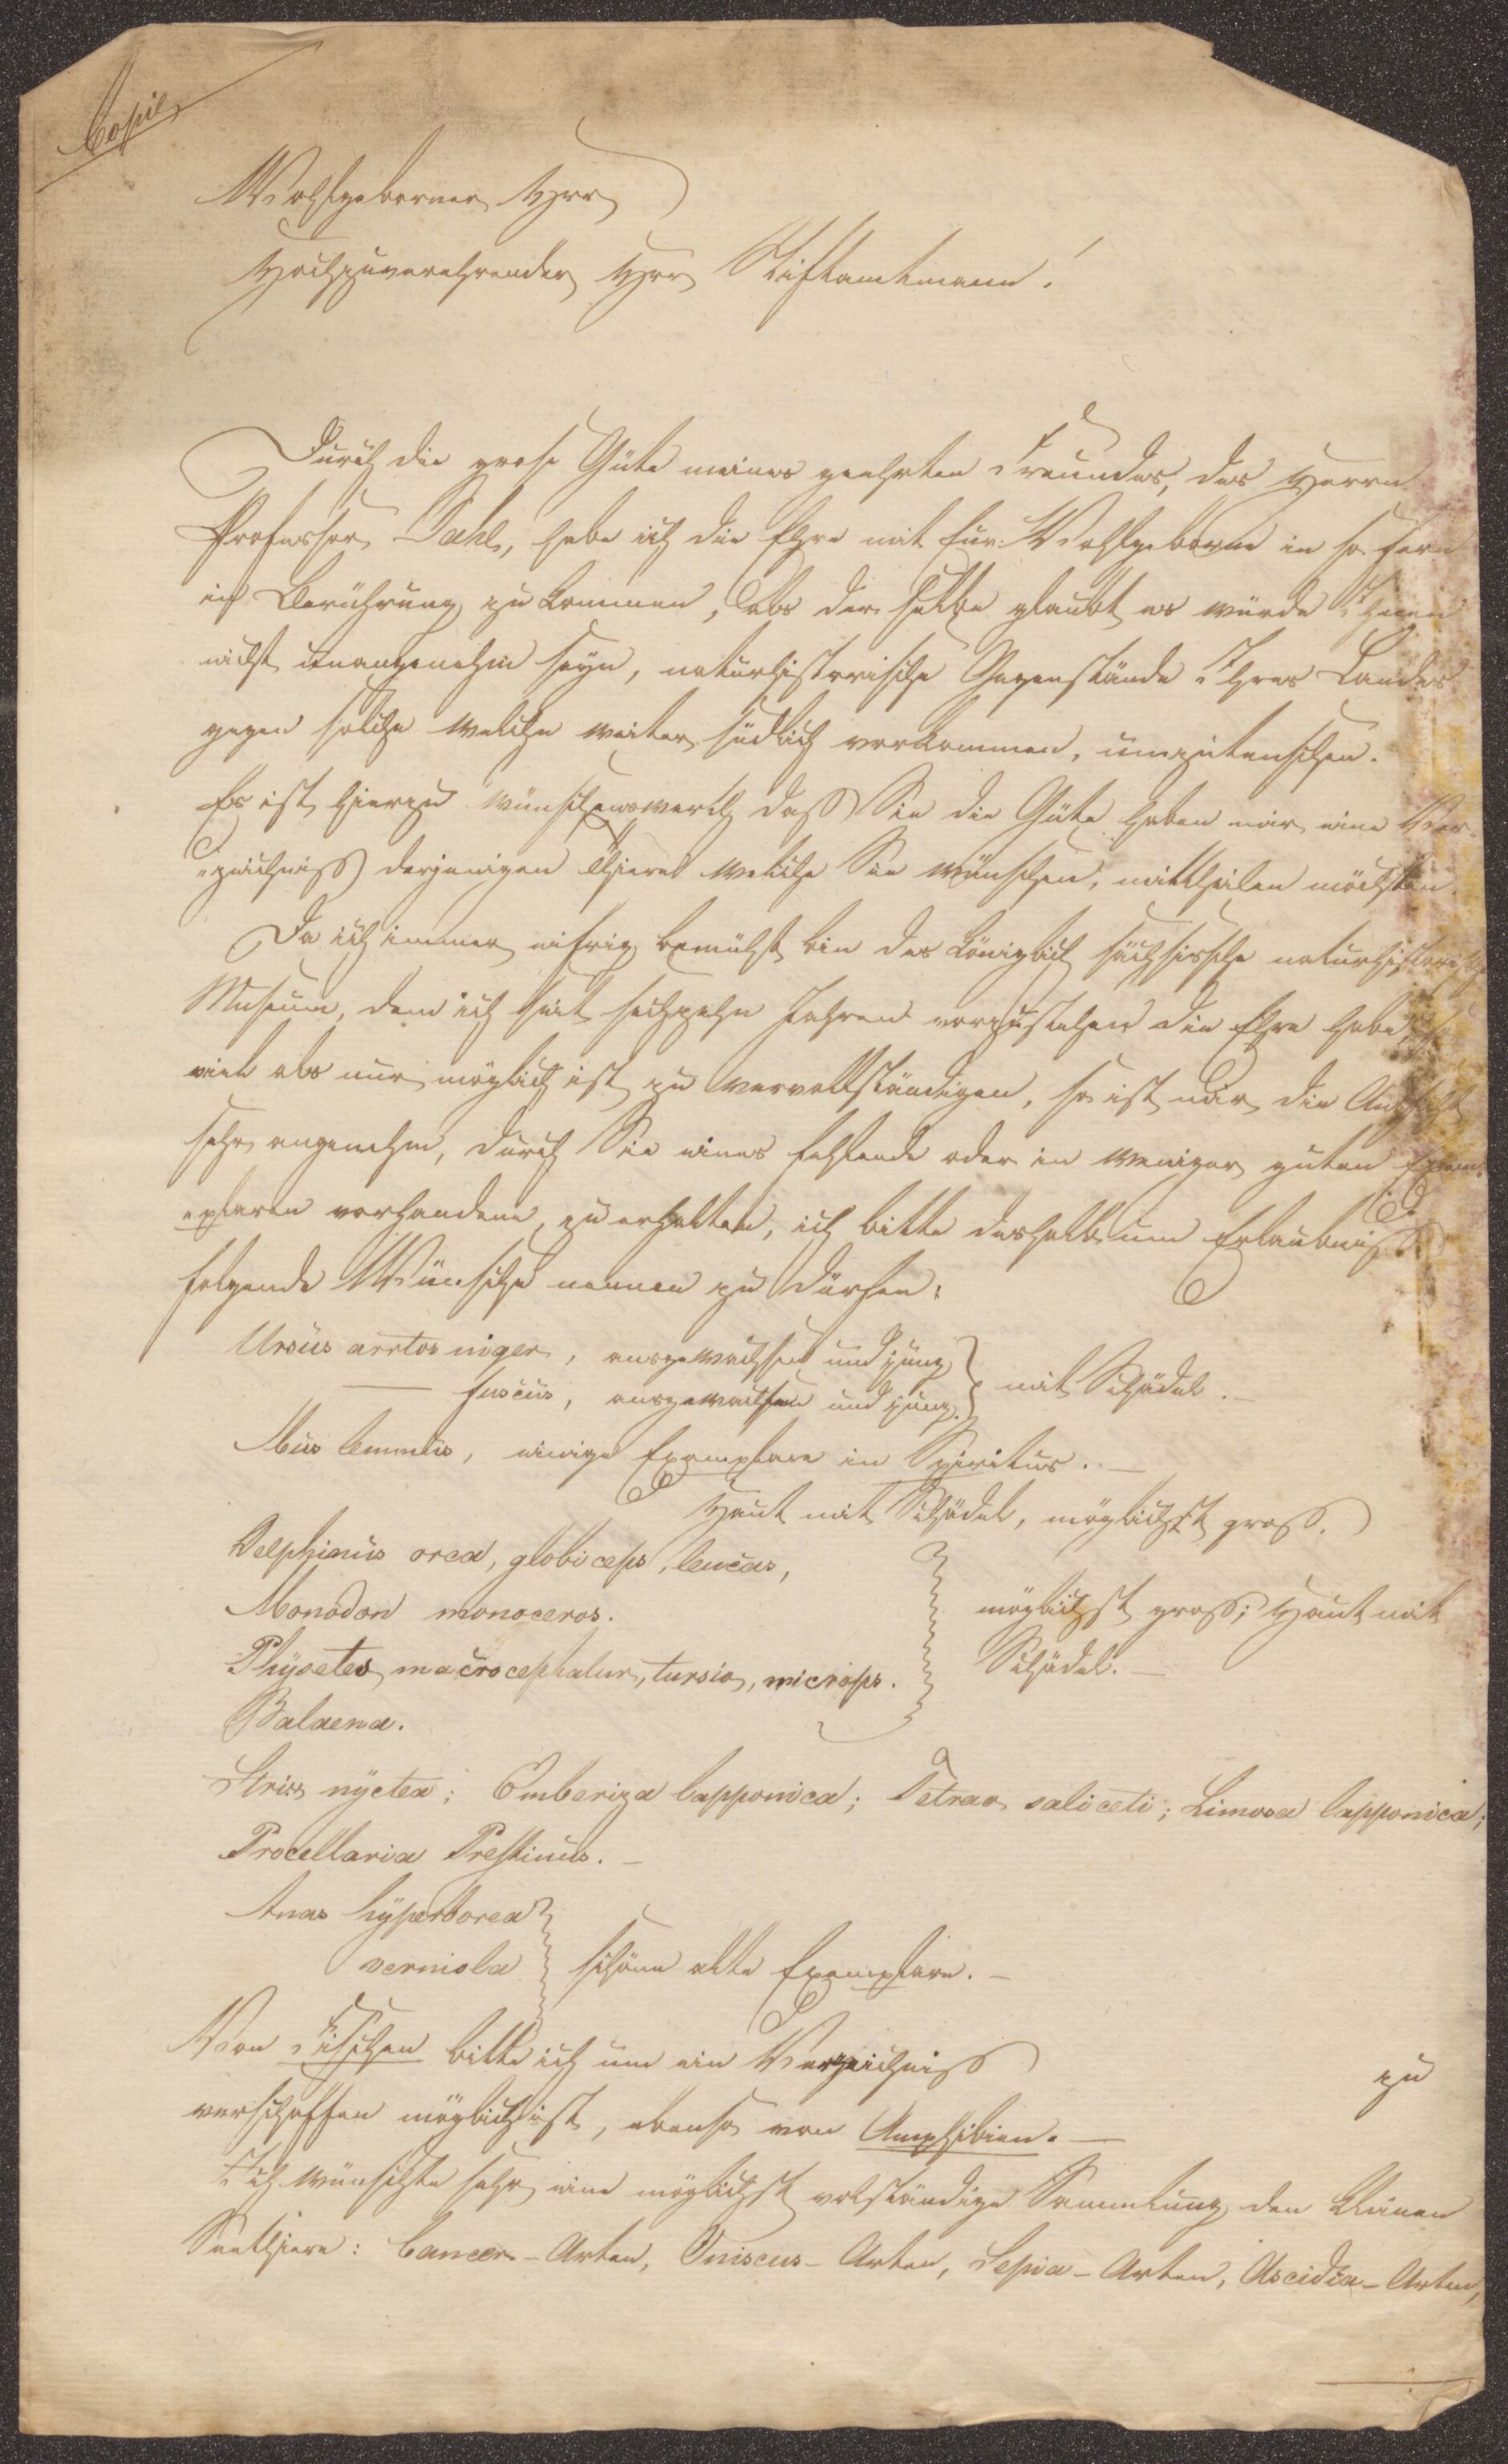 Copie
Wohlgeborner Herr
Hochzuverehrender Herr Stiftamtmann!
Durch die grose Güte meines geehrten Freundes, des Herrn
Professor Dahl, habe ich die Ehre mit Eur. Wohlgeborne in so fern
in Berührung zu kommen, als der selbe glaubt es würde Ihnen
nicht unangenehm seyn, naturhistorische Gegenstände Ihres Landes
gegen solche welche weiter südlich vorkommen, umzutauschen.
Es ist hierzu wünschenswerth daß Sie die Güte haben mir eine Ver-
"zeichniß derjenigen Thiere welche Sie wünschen, mittheilen möchten.
Da ich immer eifrig bemüht bin das königlich sächsische naturhistorische
Museum, dem ich seit sechzehn Jahren vorzustehen die Ehre habe, so
viel als nur möglich ist zu vervollständigen, so ist mir die Aussicht
sehr angenehm, durch Sie eines fehlende oder in weniger guten Exem-
"plaren vorhandene, zu erhalten, ich bitte deshalb um Erlaubniß
folgende Wünsche nennen zu dürfen:
Ursus arctos niger, ausgewachsen und jung } mit Schädel. —
— fuscus, ausgewachsen und jung.
Mus lemmus, einige Exemplare in Spiritus. —
Haut mit Schädel, möglichst groß.
Delphinus orca, globiceps, leucas,
Monodon monoceros.
möglichst groß; Haut mit
Physeter macrocephalus, tursio, microps.
Schädel. —
Balaena.
Strix nyctea; Emberiza lapponica; Tetrao saliceti; Limosa lapponica;
Procellaria . —
Anas hyperborea
schöne alte Exemplare. —
Von Fischen bitte ich um ein Verzeichniß zu
verschaffen möglich ist, ebenso von Amphibien. —
Ich wünschte sehr eine möglichst volständige Sammlung den kleinen
Seethiere: Cancer-Arten, Oniscus-Arten, Sepia-Arten, Ascidia-Arten,